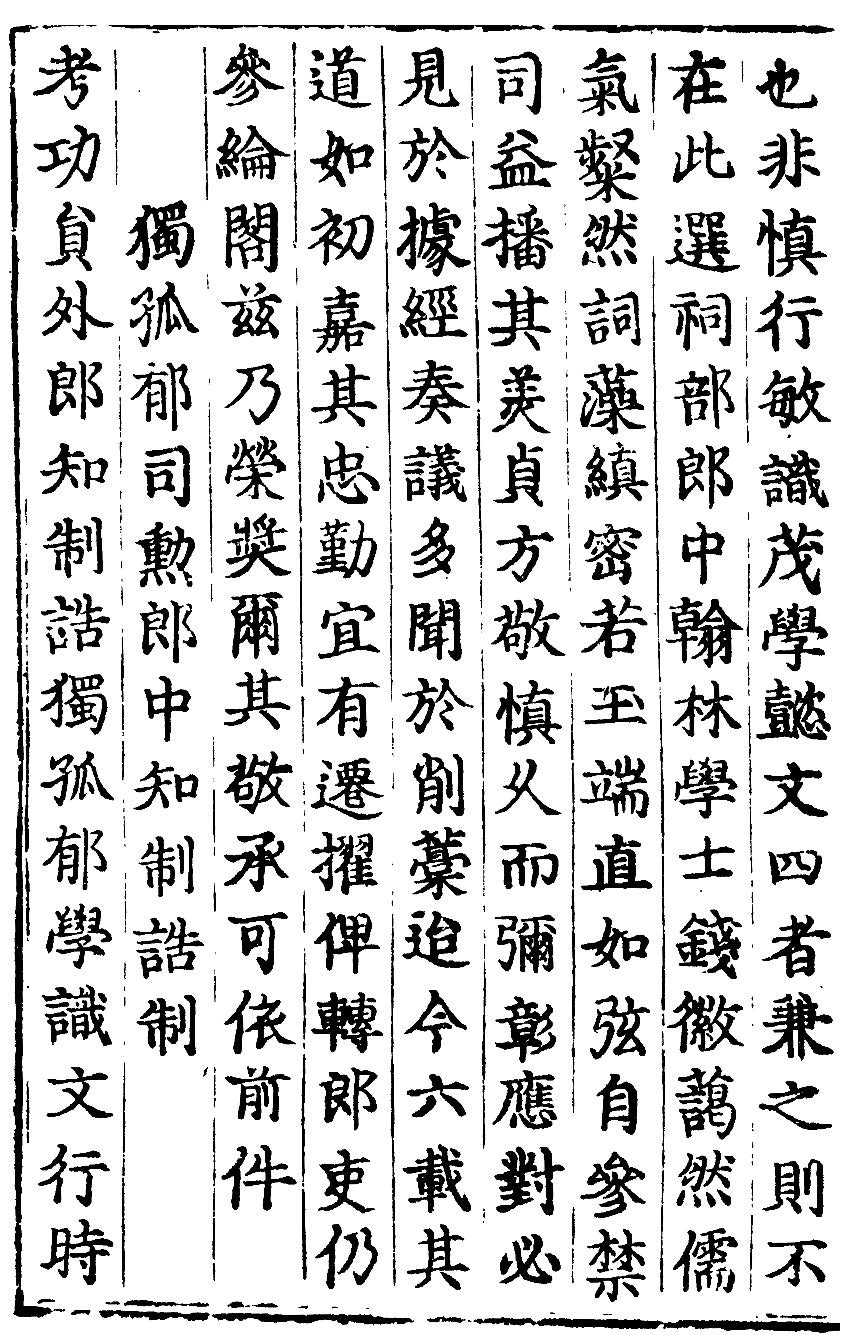 也非慎行敏識茂學懿文四者兼之則不
在此選祠部郎中翰林學士錢徽藹然儒
氣粲然詞藻縝密若玉端直如弦自參禁
司益播其美貞方敬慎久而彌彰應對必
見於據經奏議多聞於削藁迨今六載其
道如初嘉其忠勤宜有遷擢俾轉郎吏仍
參綸閣兹乃榮奬爾其敬承可依前件
獨孤郁司勲郎中知制誥制
考功貟外郎知制誥獨孤郁學識文行時